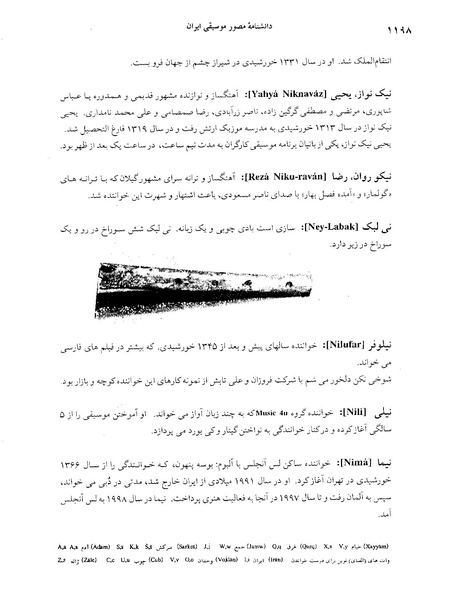 دانشنامهٔ مصور موسیقی ایران
۱۱۹۸
انتقام‌الملک شد. او در سال ۱۳۳۱ خورشیدی در شیراز چشم از جهان فرو بست.
نیک نواز، یحیی [Yahyá Niknaváz]: آهنگساز و نوازنده مشهور قدیمی و همدوره با عباس
شاپوری، مرتضی و مصطفی گرگین زاده، ناصر زرآبادی، رضا صمصامی و علی محمد نامداری. یحیی
نیک نواز در سال ۱۳۱۳ خورشیدی به مدرسه موزیک ارتش رفت و در سال ۱۳۱۹ فارغ التحصیل شد.
یحیی نیک نواز، یکی از بانیان برنامه موسیقی کارگران به مدت نیم ساعت، در ساعت یک بعد از ظهر بود.
نیکو روان، رضا [Rezá Niku-raván]: آهنگساز و ترانه سرای مشهور گیلان که با ترانه های
«گولمار» و «آمد» فصل بهار» با صدای ناصر مسعودی، باعث اشتهار و شهرت این خواننده شد.
نی لبک [Ney-Labak]: سازی است بادی چوبی و یک زبانه. نی لبک شش سوراخ در رو و یک
سوراخ در زیر دارد.
نیلوفر [Nilufar]: خواننده سالهای پیش و بعد از ۱۳۴۵ خورشیدی، که بیشتر در فیلم های فارسی
می خواند.
شوخی نکن دلخور می شم با شرکت فروزان و علی تابش از نمونه کارهای این خواننده کوچه و بازار بود.
نیلی [Nili]: خواننده گروه Music 4u که به چند زبان آواز می خواند. او آموختن موسیقی را از ۵
سالگی آغاز کرده و درکنار خوانندگی به نواختن گیتار و کی بورد می پردازد.
نیما [Nimá]: خواننده ساکن لس آنجلس با آلبوم: بوسه پنهون، که خوانندگی را از سال ۱۳۶۶
خورشیدی در تهران آغاز کرد. او در سال ۱۹۹۱ میلادی از ایران خارج شد، مدتی در دُبی می خواند،
سپس به آلمان رفت و تا سال ۱۹۹۷ در آنجا به فعالیت هنری پرداخت. نیما در سال ۱۹۹۸ به لس آنجلس
آمد.